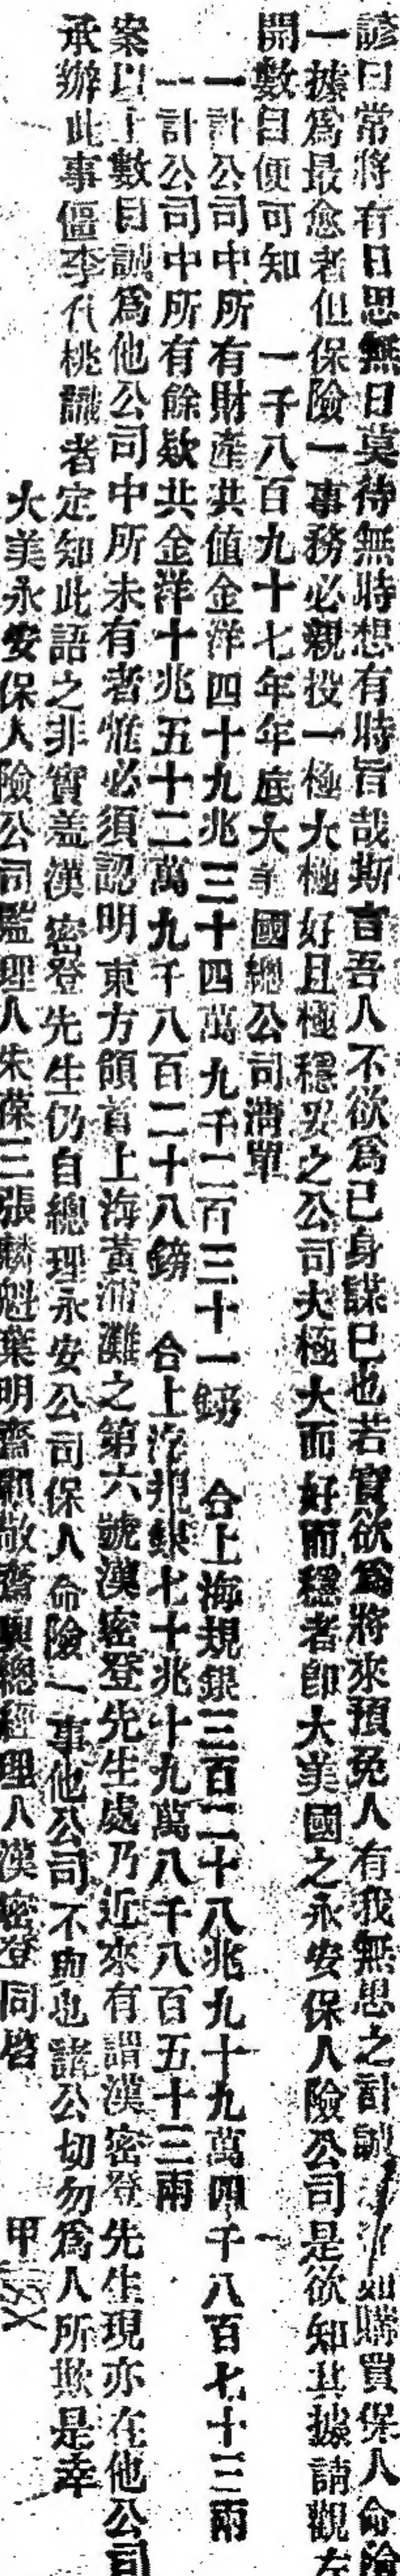 諺曰常將有日思無日莫待無時想有時旨哉斯言吾人不欲爲己身謀已也若實欲爲將來預免人有我無思之計誠 如購買保人命險
一據爲最愈者但保險一事務必親投一極大極好且極穩妥之公司夫極大而好而穩者即大美國之永安保人險公司是欲知其據請觀左
開數目便可知 一千八百九十七年年底大美國總公司清單
一計公司中所有財產共值金洋四十九兆三十四萬九千二百三十一鎊 合上海規銀三百二十八兆九十九萬四千八百七十三兩
一計公司中所有餘欵共金洋十兆五十二萬九千八百二十八鎊 合上海規銀七十兆十九萬八千八百五十三兩
案以上數目誠爲他公司中所未有者惟必須認明東方領首上海黃浦灘之第六號漢密登先生處乃近來有謂漢密登先生現亦在他公司
承辦此事僵李代桃識者定知此語之非實蓋漢密登先生仍自總理永安公司保人命險一事他公司不與也諸公切勿爲人所欺是幸
大美永安保人險公司監理人朱葆三張麟魁葉明齋顧敬齋 總經理人漢密登同啓 甲